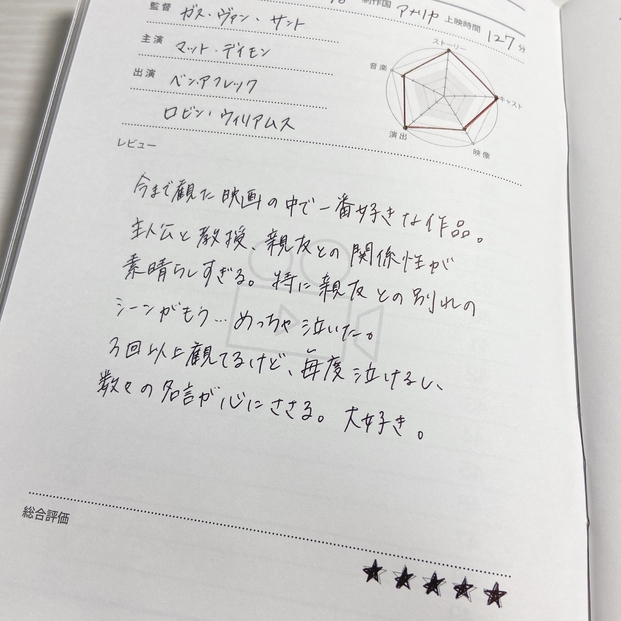 製作国 アメリカ 上映時間 127分
監督 ガス・ヴァン・サント
主演 マット・デイモン
出演 ベン・アフレック
ロビン・ウィリアムス
ストーリー
音楽
キャスト
演出
映像
レビュー
今まで観た映画の中で一番好きな作品。
主人公と教授、親友との関係性が
素晴らしすぎる。特に親友との別れの
シーンがもう…めっちゃ泣いた。
3回以上観てるけど、毎度泣けるし、
数々の名言が心にささる。大好き。
総合評価